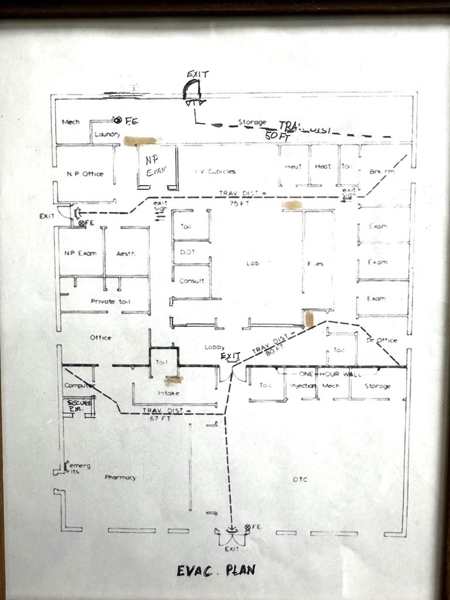 EXIT
Mech
F.E.
Storage
TRAV. DIST
50 FT
Laundry
N.P. Office
N.P
EXAM
I.V. Cubicles
Heat
Heat
Toil
Brk rm
TRAV. DIST =
75 FT
EXIT
exit
sign
exit
sign
F.E.
Exam
Toil
N.P Exam
Aesth.
DOT
Lab
Files
Exam
Consult
Private toil
Exam
Office
Lobby
EXIT
TRAV. DIST =
80 FT
Toil
Dr Office
Toil
ONE HOUR WALL
Computer
Intake
Toil
Injection
Mech
Storage
SECURE
RM.
TRAV. DIST =
67 FT
emerg
lts
Pharmacy
OTC
F.E.
EXIT
EVAC. PLAN